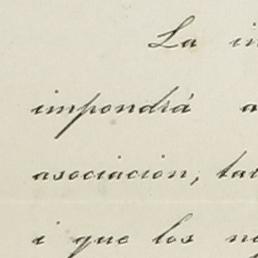 La
impondrá a
asociacion, ta
i que los